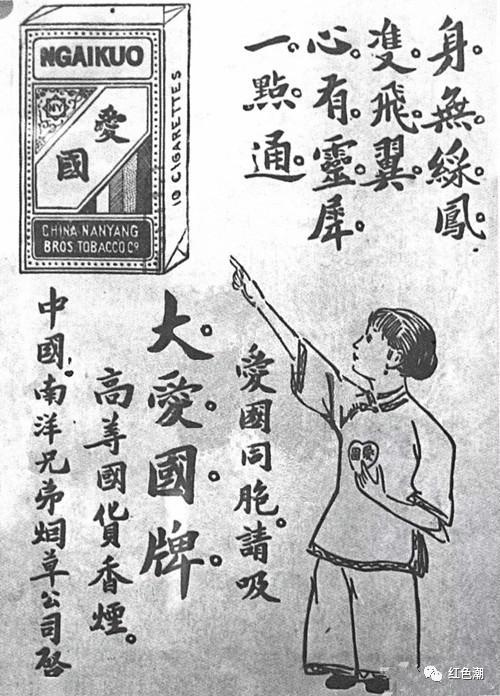 NGAIKUO
NY
愛
國
CHINA NANYANG
BROS. TOBACCO Cº
10 CIGARETTES
身。無。綵。鳳。
雙。飛。翼。
心。有。靈。犀。
一。點。通。
愛國
愛國同胞。請吸
大。愛。國。牌。
高等國貨香煙。
中國南洋兄弟烟草公司啓
红色潮